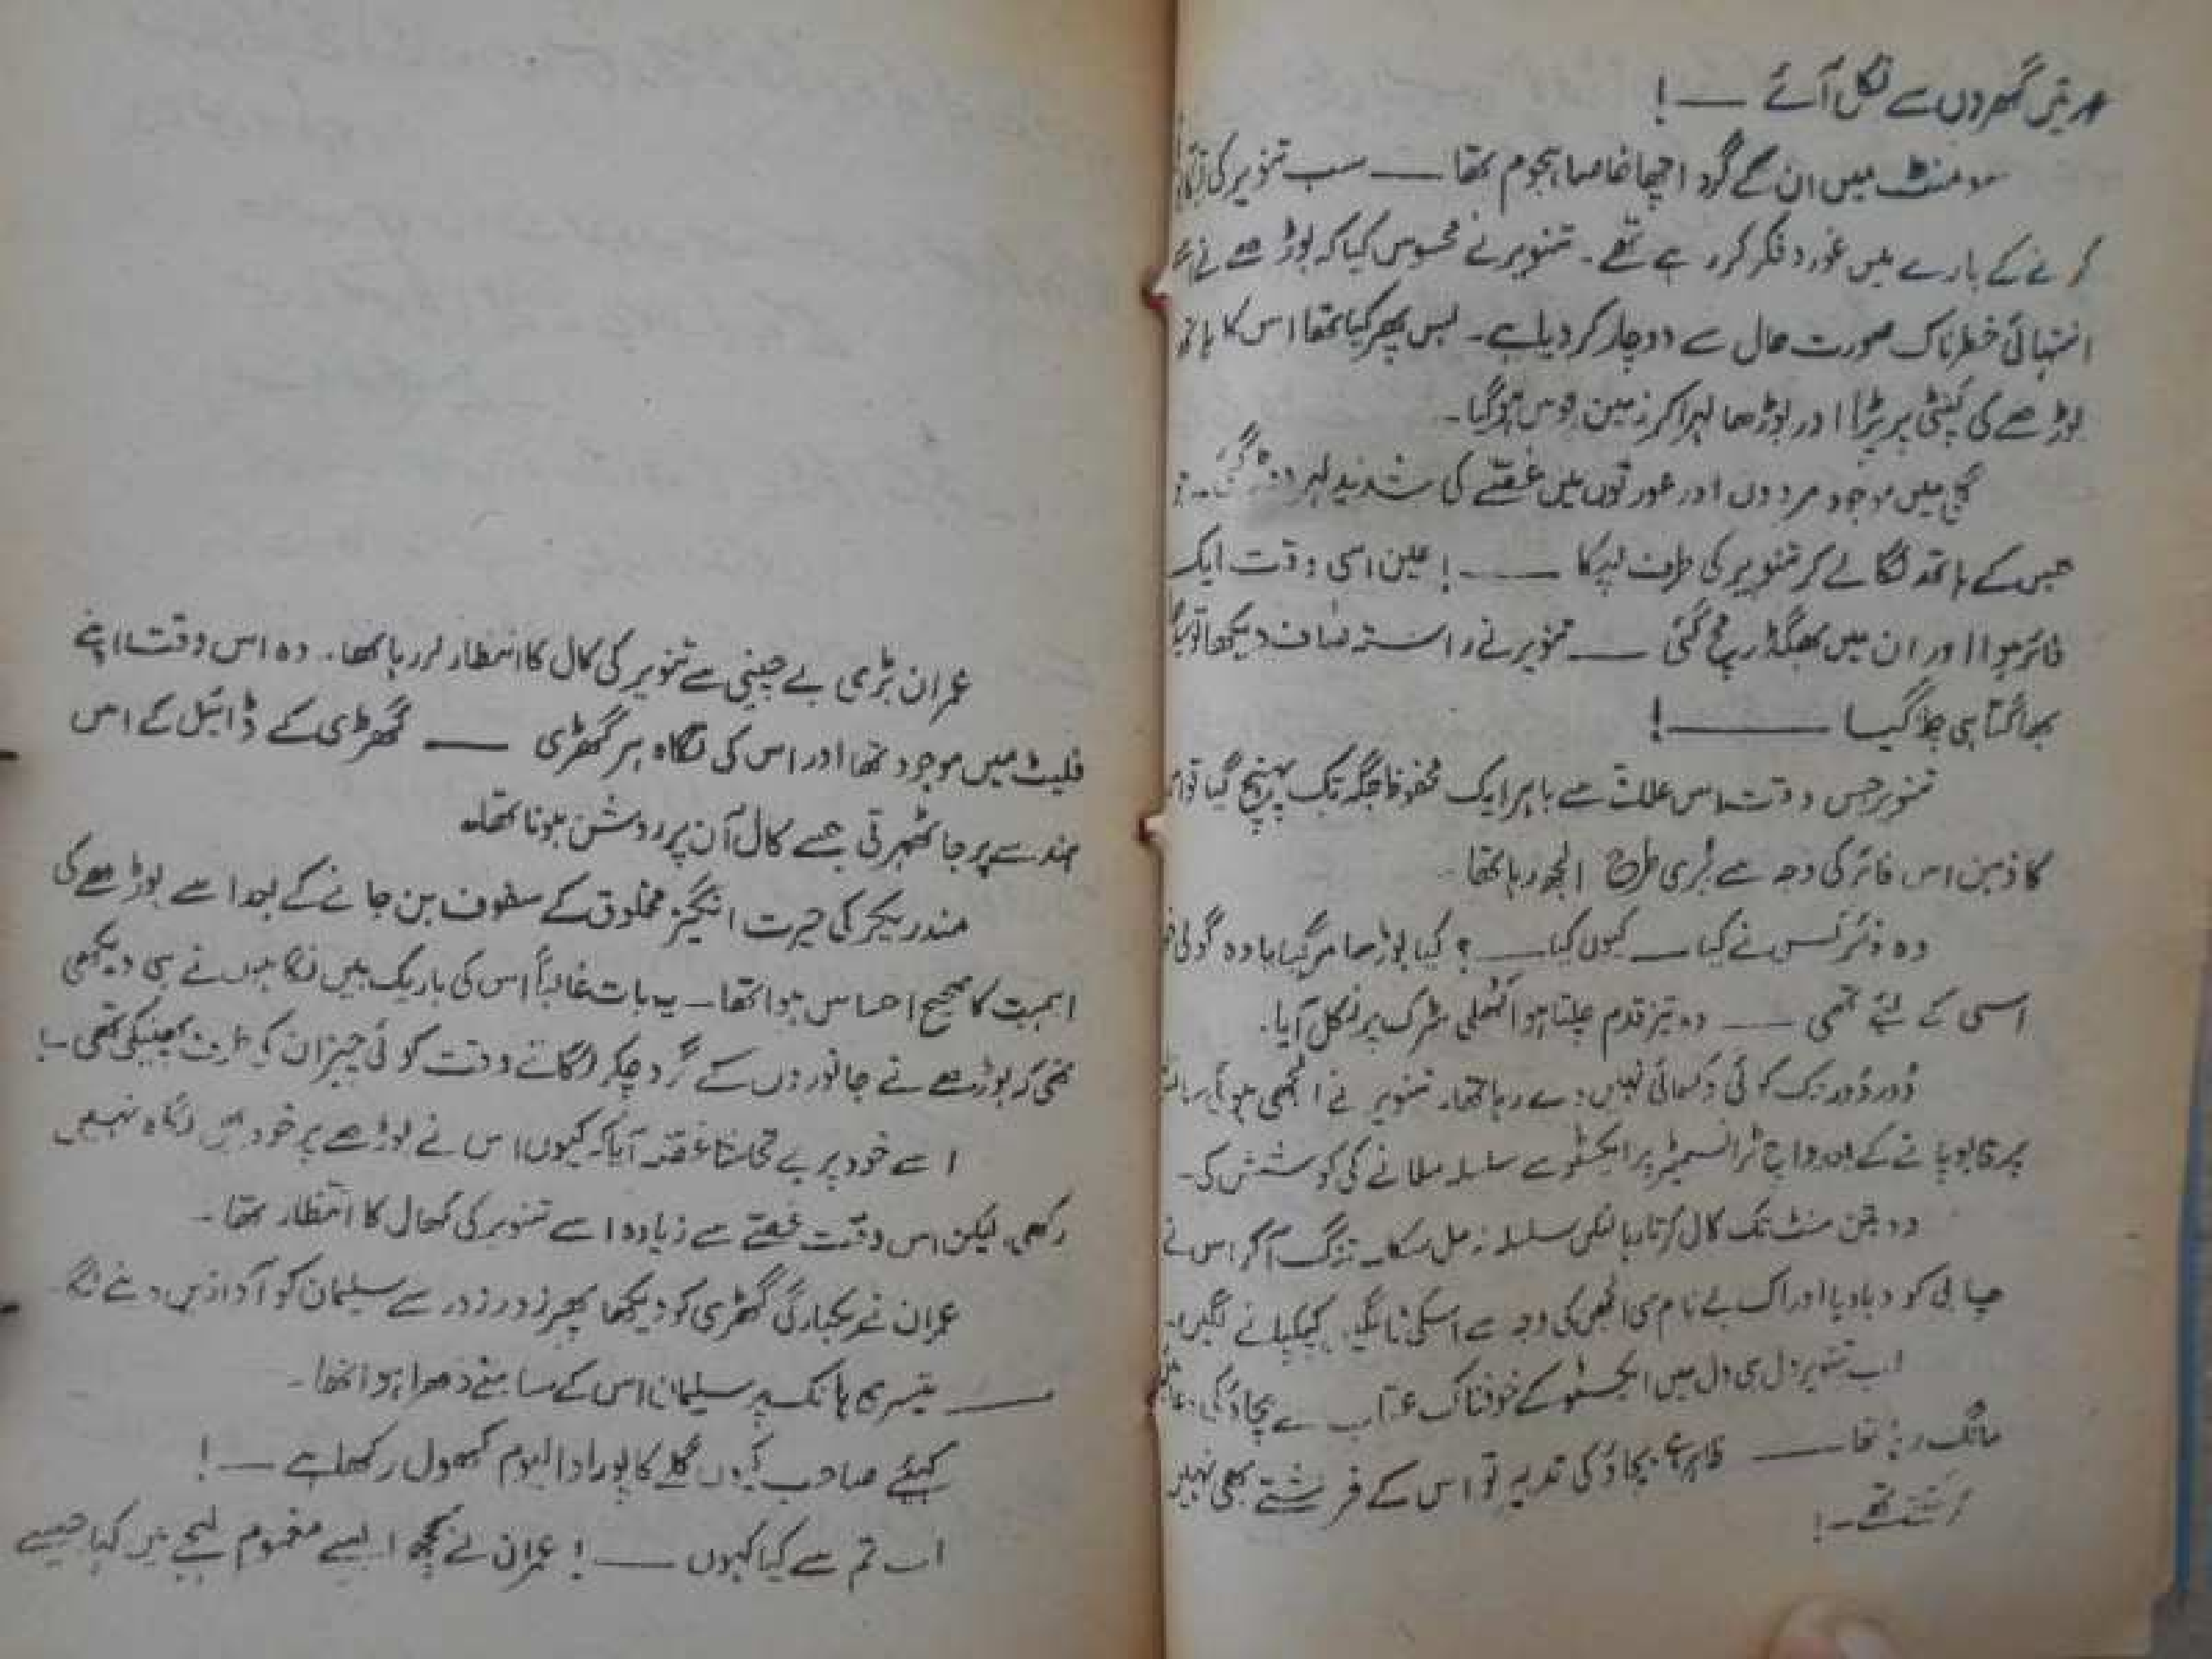 عورتیں گھروں سے نکل آئے ـــــ !
سو منٹ میں ان کے گرد اچھا خاصا ہجوم تھا ـــــ سب تنویر کی
کرنے کے بارے میں غور و فکر کر رہے تھے۔ تنویر نے محسوس کیا کہ بوڑھے نے اسے
انتہائی خطرناک صورت حال سے دوچار کر دیا ہے۔ بس پھر کیا تھا اس کا ہاتھ
بوڑھے کی کنپٹی پر پڑا اور بوڑھا لہرا کر زمین بوس ہو گیا۔
گلی میں موجود مردوں اور عورتوں میں غصّے کی شدید لہر دوڑ گئی۔
جس کے ہاتھ لگا لے کر تنویر کی طرف لپکا ـــــ ! عین اسی وقت ایک
فائر ہوا اور ان میں بھگدڑ مچ گئی ـــــ تنویر نے راستہ صاف دیکھا تو
بھاگتا ہی چلا گیا ـــــ !
تنویر جس وقت اس علاقے سے باہر ایک محفوظ جگہ تک پہنچ گیا تو اس
کا ذہن اس فائر کی وجہ سے بُری طرح الجھ رہا تھا۔
وہ فائر کس نے کیا ـــــ کیوں کیا ـــــ ؟ کیا بوڑھا مر گیا یا وہ گولی
اسی کے لئے تھی ـــــ وہ تیز قدم چلتا ہوا اگلی سڑک پر نکل آیا۔
دُور دُور تک کوئی دکھائی نہیں دے رہا تھا۔ تنویر نے الجھی ہوئی
پر قابو پانے کے بعد واچ ٹرانسمیٹر پر ایکسٹو سے سلسلہ ملانے کی کوشش کی۔
دو تین منٹ تک کال کرتا رہا لیکن سلسلہ نہ مل سکا۔ تنگ آ کر اس نے
چابی کو دبا دیا اور اک بے نام سی الجھن کی وجہ سے اسکی ٹانگیں کپکپانے لگیں۔
اب تنویر دل ہی دل میں ایکسٹو کے خوفناک عتاب سے بچاؤ کی
مانگ رہا تھا ـــــ ظاہر ہے بچاؤ کی تدبیر تو اس کے فرشتے بھی نہیں
کر سکتے تھے۔ !
عمران بڑی بے چینی سے تنویر کی کال کا انتظار کر رہا تھا۔ وہ اس وقت اپنے
فلیٹ میں موجود تھا اور اس کی نگاہ ہر گھڑی ـــــ گھڑی کے ڈائیل کے اس
ہندسے پر جا ٹھہرتی جسے کال آن پر روشن ہونا تھا۔
مندریکر کی حیرت انگیز مخلوق کے سفوف بن جانے کے بعد اسے بوڑھے کی
اہمیت کا صحیح احساس ہوا تھا۔ یہ بات غالباً اس کی باریک بین نگاہوں نے ہی دیکھی
تھی کہ بوڑھے نے جانوروں کے گرد چکر لگاتے وقت کوئی چیز ان کی طرف پھینکی تھی۔
اسے خود پر بے تحاشا غصّہ آیا کہ کیوں اس نے بوڑھے پر خود ہی نگاہ نہیں
رکھی، لیکن اس وقت غصّے سے زیادہ اسے تنویر کی کال کا انتظار تھا۔
عمران نے یکبارگی گھڑی کو دیکھا پھر زور زور سے سلیمان کو آوازیں دینے لگا۔
ـــــ تیسری ہانک پر سلیمان اس کے سامنے دھرا ہوا تھا۔
کہئے صاحب کیوں گلے کا پورا والیوم کھول رکھا ہے ـــــ !
اب تم سے کیا کہوں ـــــ ! عمران نے کچھ ایسے مغموم لہجے میں کہا جیسے